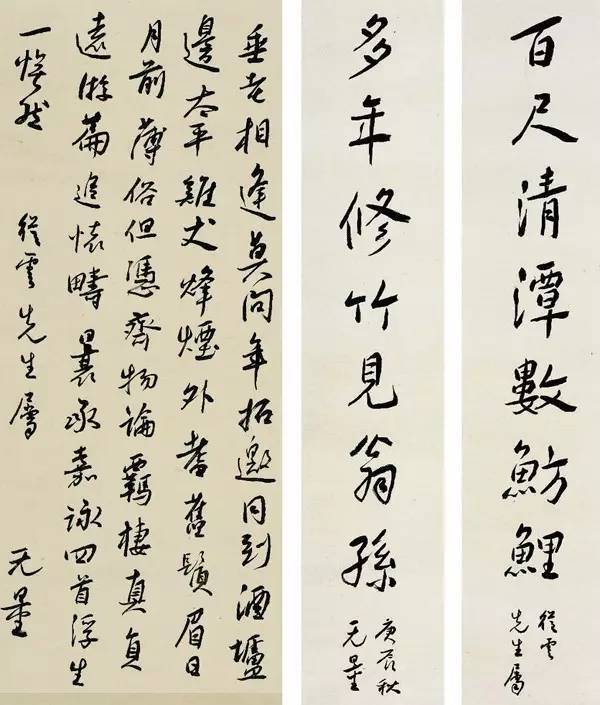 百尺清潭數魴鯉
從雲
先生屬
多年修竹見翁孫
庚辰秋
无量
垂老相逢莫問年招邀同到酒壚
邊太平雞犬烽煙外耆舊鬚眉日
月前薄俗但憑齊物論羈棲真負
遠游篇追懷疇曩承嘉詠四首浮生
一悵然 從雲先生屬 无量